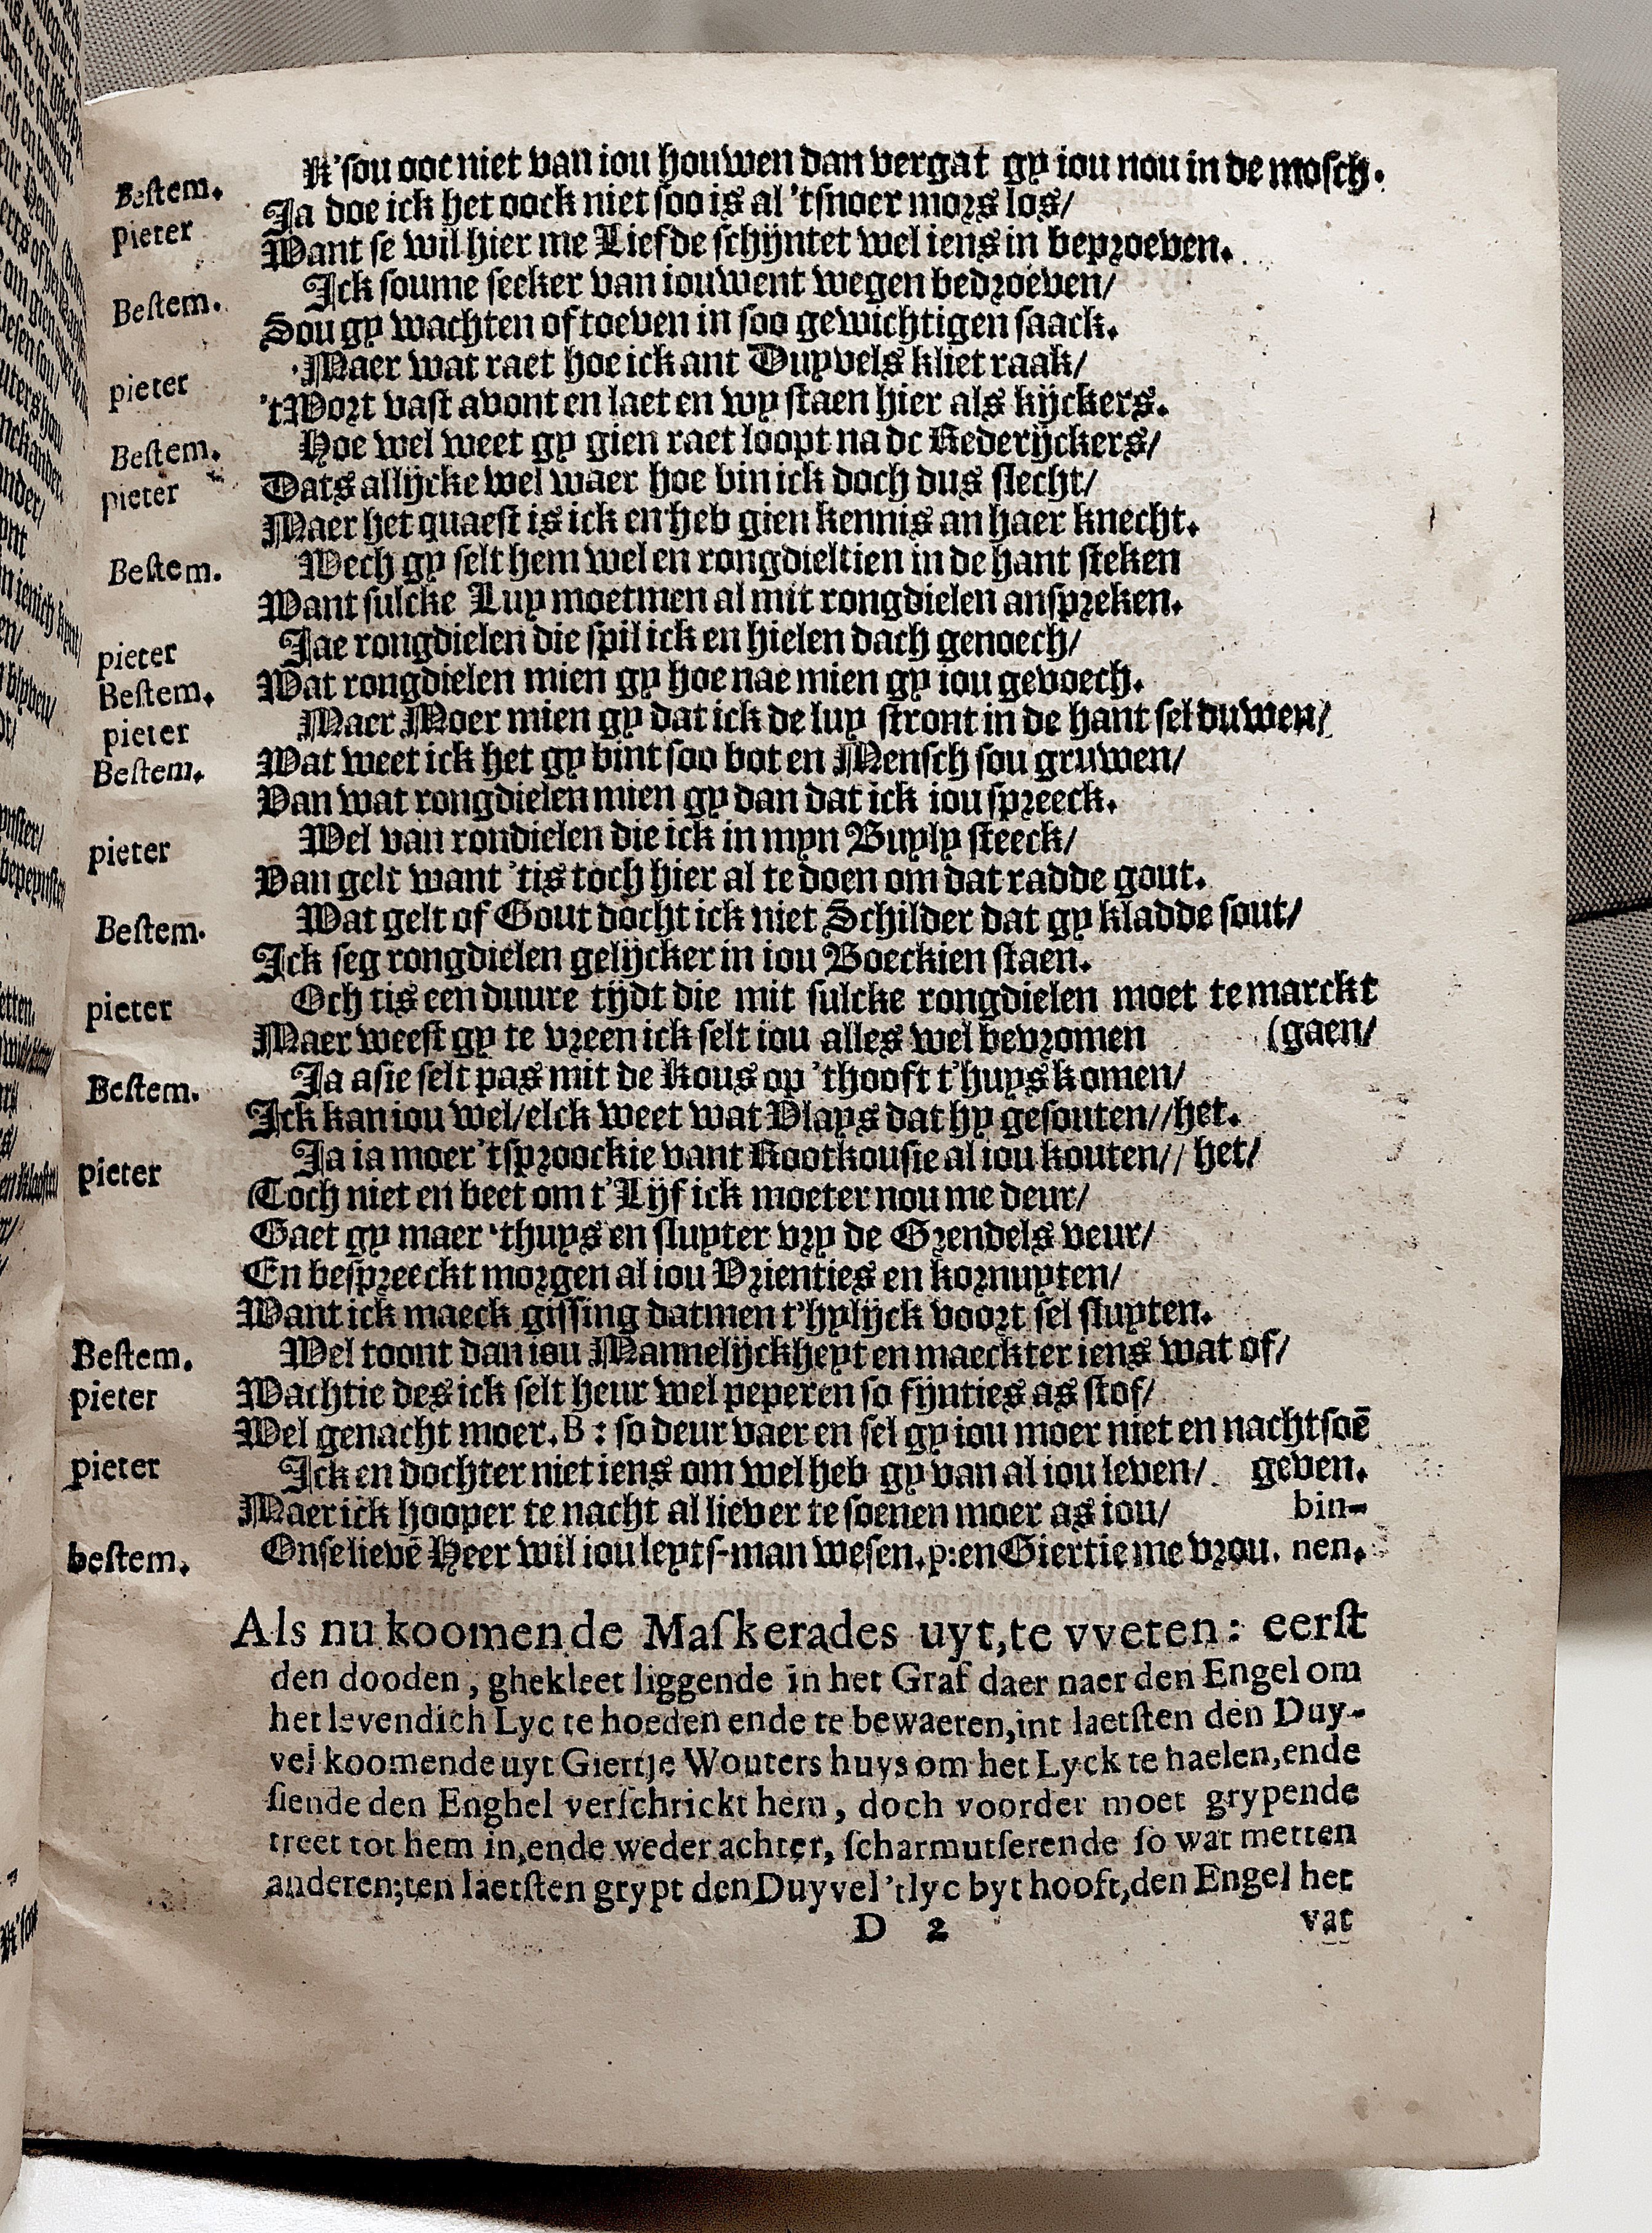 Bestem. K'sou ooc niet van iou houwen dan vergat gy iou nou in de mosch.
pieter Ja doe ick het oock niet soo is al 'tsnoer mors los/
Want se wil hier me Liefde schijntet wel iens in beproeven.
Bestem. Ick soume seeker van iouwent wegen bedroeven/
Sou gy wachten of toeven in soo gewichtigen saack.
pieter Maer wat raet hoe ick ant Duyvels kliet raak/
'tWort vast avont en laet en wy staen hier als kijckers.
Bestem. Hoe wel weet gy gien raet loopt na de Rederijckers/
pieter Dats allijcke wel waer hoe bin ick doch dus slecht/
Maer het quaest is ick en heb gien kennis an haer knecht.
Bestem. Wech gy selt hem wel en rongdieltien in de hant steken
Want sulcke Luy moetmen al mit rongdielen anspreken.
pieter Jae rongdielen die spil ick en hielen dach genoech/
Bestem. Wat rongdielen mien gy hoe nae mien gy iou gevoech.
pieter Maer Moer mien gy dat ick de luy stront in de hant sel duwen/
Bestem. Wat weet ick het gy bint soo bot en Mensch sou gruwen/
Van wat rongdielen mien gy dan dat ick iou spreeck.
pieter Wel van rondielen die ick in myn Buyly steeck/
Van gelt want 'tis toch hier al te doen om dat radde gout.
Bestem. Wat gelt of Gout docht ick niet Schilder dat gy kladde sout/
Ick seg rongdielen gelijcker in iou Boeckien staen.
pieter Och tis een duure tijdt die mit sulcke rongdielen moet te marckt
Maer weest gy te vreen ick selt iou alles wel bevromen (gaen/
Bestem. Ja asie selt pas mit de Kous op 'thooft t'huys komen/
Ick kan iou wel/elck weet wat Vlays dat hy gesouten//het.
pieter Ja ia moer 'tsproockie vant Rootkousie al iou kouten// het/
Toch niet en beet om t'Lijf ick moeter nou me deur/
Gaet gy maer 'thuys en sluyter vry de Grendels veur/
En bespreeckt morgen al iou Vrienties en kornuyten/
Want ick maeck gissing datmen t'hylijck voort sel sluyten.
Bestem. Wel toont dan iou Mannelijckheyt en maeckter iens wat of/
pieter Wachtie des ick selt heur wel peperen so fijnties as stof/
Wel genacht moer. B: so deur vaer en sel gy iou moer niet en nachtsoē
pieter Ick en dochter niet iens om wel heb gy van al iou leven/ geven.
Maer ick hooper te nacht al liever te soenen moer as iou/ bin-
bestem. Onselievē Heer wil iou leyts-man wesen. p: en Giertie me vrou. nen.
Als nu koomen de Maskerades uyt, te vveten: eerst
den dooden, ghekleet liggende in het Graf daer naer den Engel om
het levendich Lyc te hoeden ende te bewaeren, int laetsten den Duy-
vel koomende uyt Giertje Wouters huys om het Lyck te haelen, ende
siende den Enghel verschrickt hem, doch voorder moet grypende
treet tot hem in, ende weder achter, scharmutserende so wat metten
anderen; ten laetsten grypt den Duyvel 't lyc byt hooft, den Engel het
D 2 vat